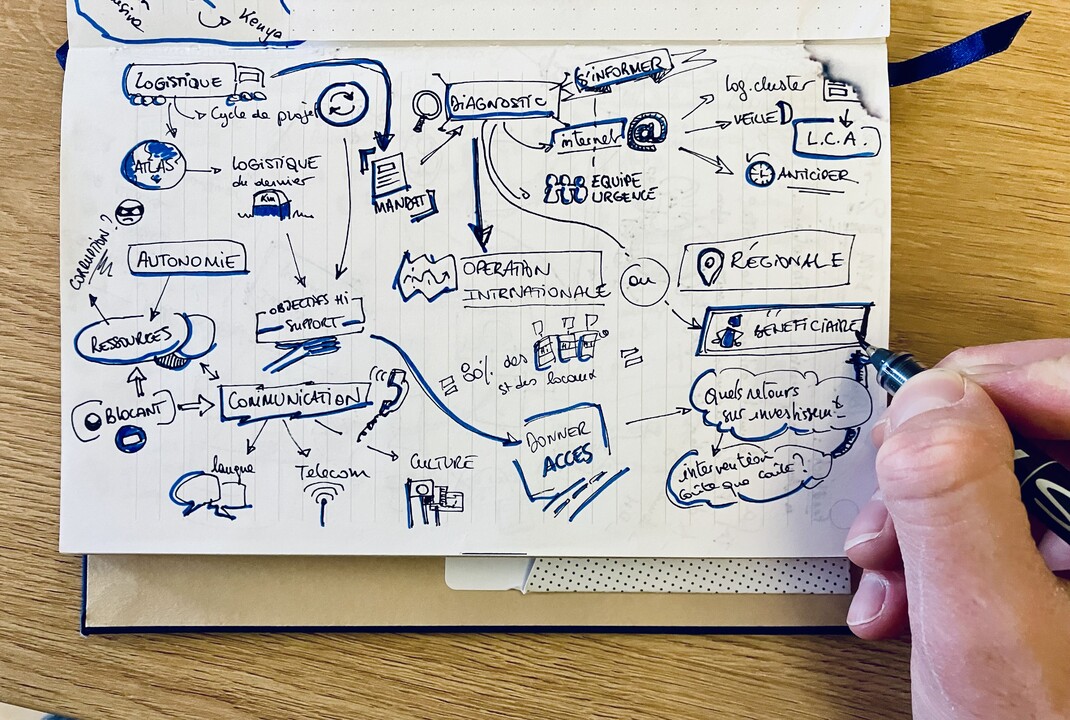 Kenya
LOGISTIQUE
Cycle de projet
ATLAS
LOGISTIQUE
du dernier
Km
CORRUPTION?
AUTONOMIE
RESSOURCES
BLOCANT
OBJECTIFS Hi
SUPPORT
COMMUNICATION
langue
Telecom
CULTURE
MANDAT
DIAGNOSTIC
S'INFORMER
internet
@
EQUIPE
URGENCE
log.cluster
VEILLE
L.C.A.
ANTICIPER
OPERATION
INTRNATIONALE
ou
RÉGIONALE
BÉNÉFICIAIRE
80% des
st des locaux
DONNER
ACCES
Quels retours
sur investissemt
intervention
coûte que coûte?